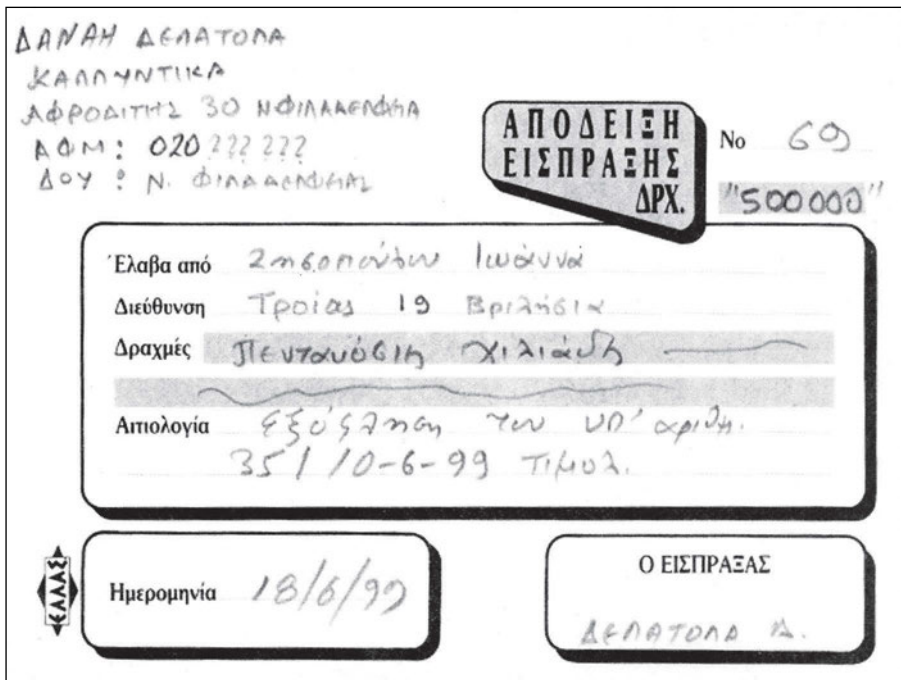 ΔΑΝΑΗ ΔΕΛΑΤΟΛΑ
ΚΑΛΛΥΝΤΙΚΑ
ΑΦΡΟΔΙΤΗΣ 30 Ν ΦΙΛΑΔΕΛΦΕΙΑ
ΑΦΜ: 020 ??? ???
ΔΟΥ : Ν. ΦΙΛΑΔΕΛΦΕΙΑΣ
ΑΠΟΔΕΙΞΗ
ΕΙΣΠΡΑΞΗΣ
ΔΡΧ.
No 69
"500000"
Έλαβα από Ιωάννα
Διεύθυνση Τροίας 19 Βριλήσια
Δραχμές Πεντακόσιες χιλιάδες
Αιτιολογία εξόφληση του υπ' αριθμ.
35 / 10-6-99 τιμολ.
ΕΛΛΑΣ
Ημερομηνία 18/6/99
Ο ΕΙΣΠΡΑΞΑΣ
ΔΕΛΑΤΟΛΑ Δ.